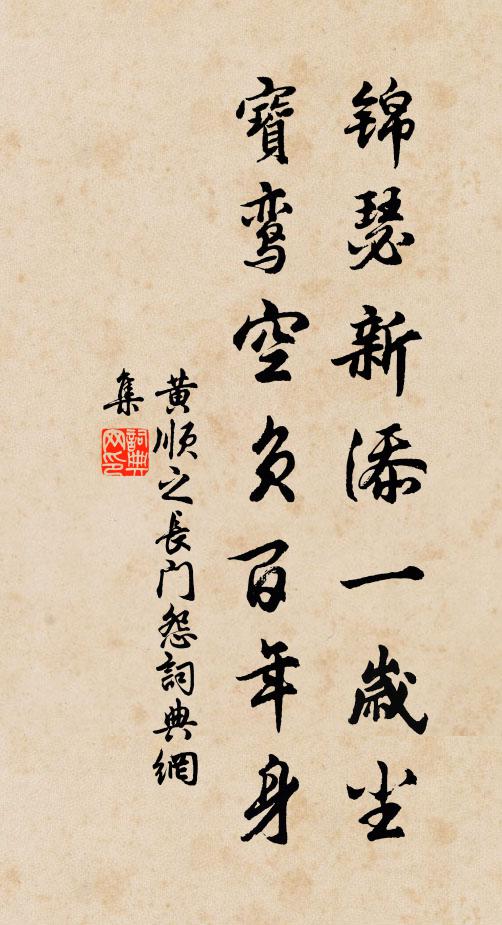 锦瑟新添一歲尘
寶鸾空负百年身
黄顺之長门怨詞典網
集
詞典网印